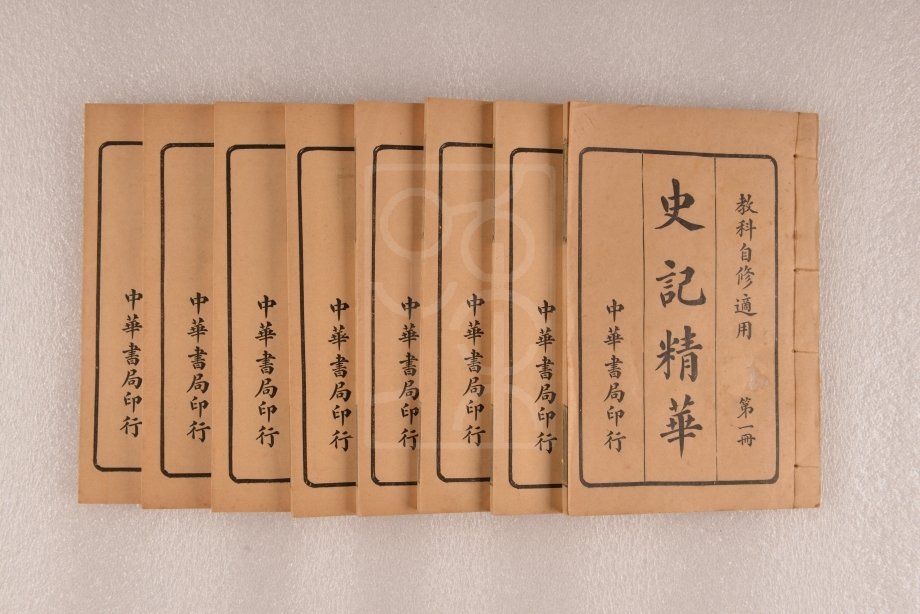 教科自修適用　第一冊
史記精華
中華書局印行
中華書局印行
中華書局印行
中華書局印行
中華書局印行
中華書局印行
中華書局印行
中華書局印行